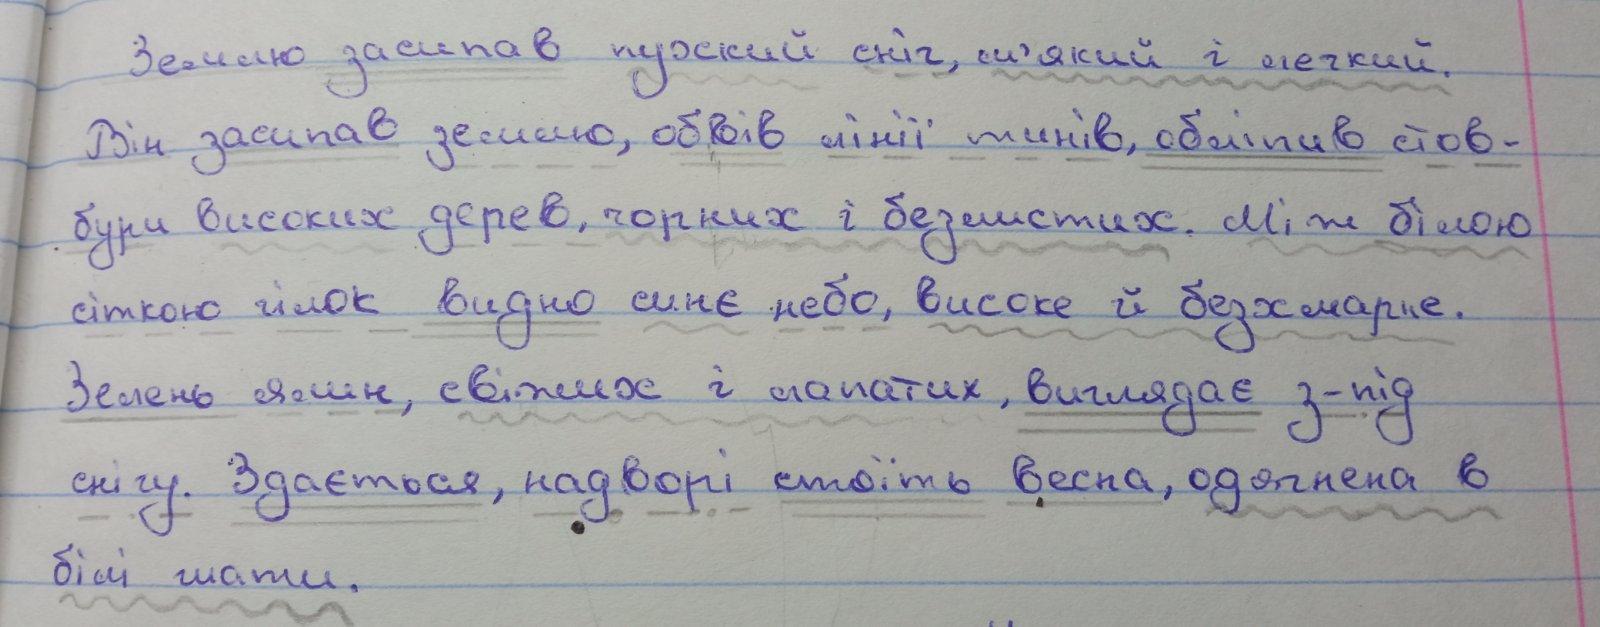 Землю засипав пухкий сніг, м'який і легкий.
Він засипав землю, обвів лінії тинів, обліпив стов-
бури високих дерев, чорних і безлистих. Між білою
сіткою гілок видно синє небо, високе й безхмарне.
Зелень ялин, свіжих і лапатих, виглядає з-під
снігу. Здається, надворі стоїть весна, одягнена в
білі шати.